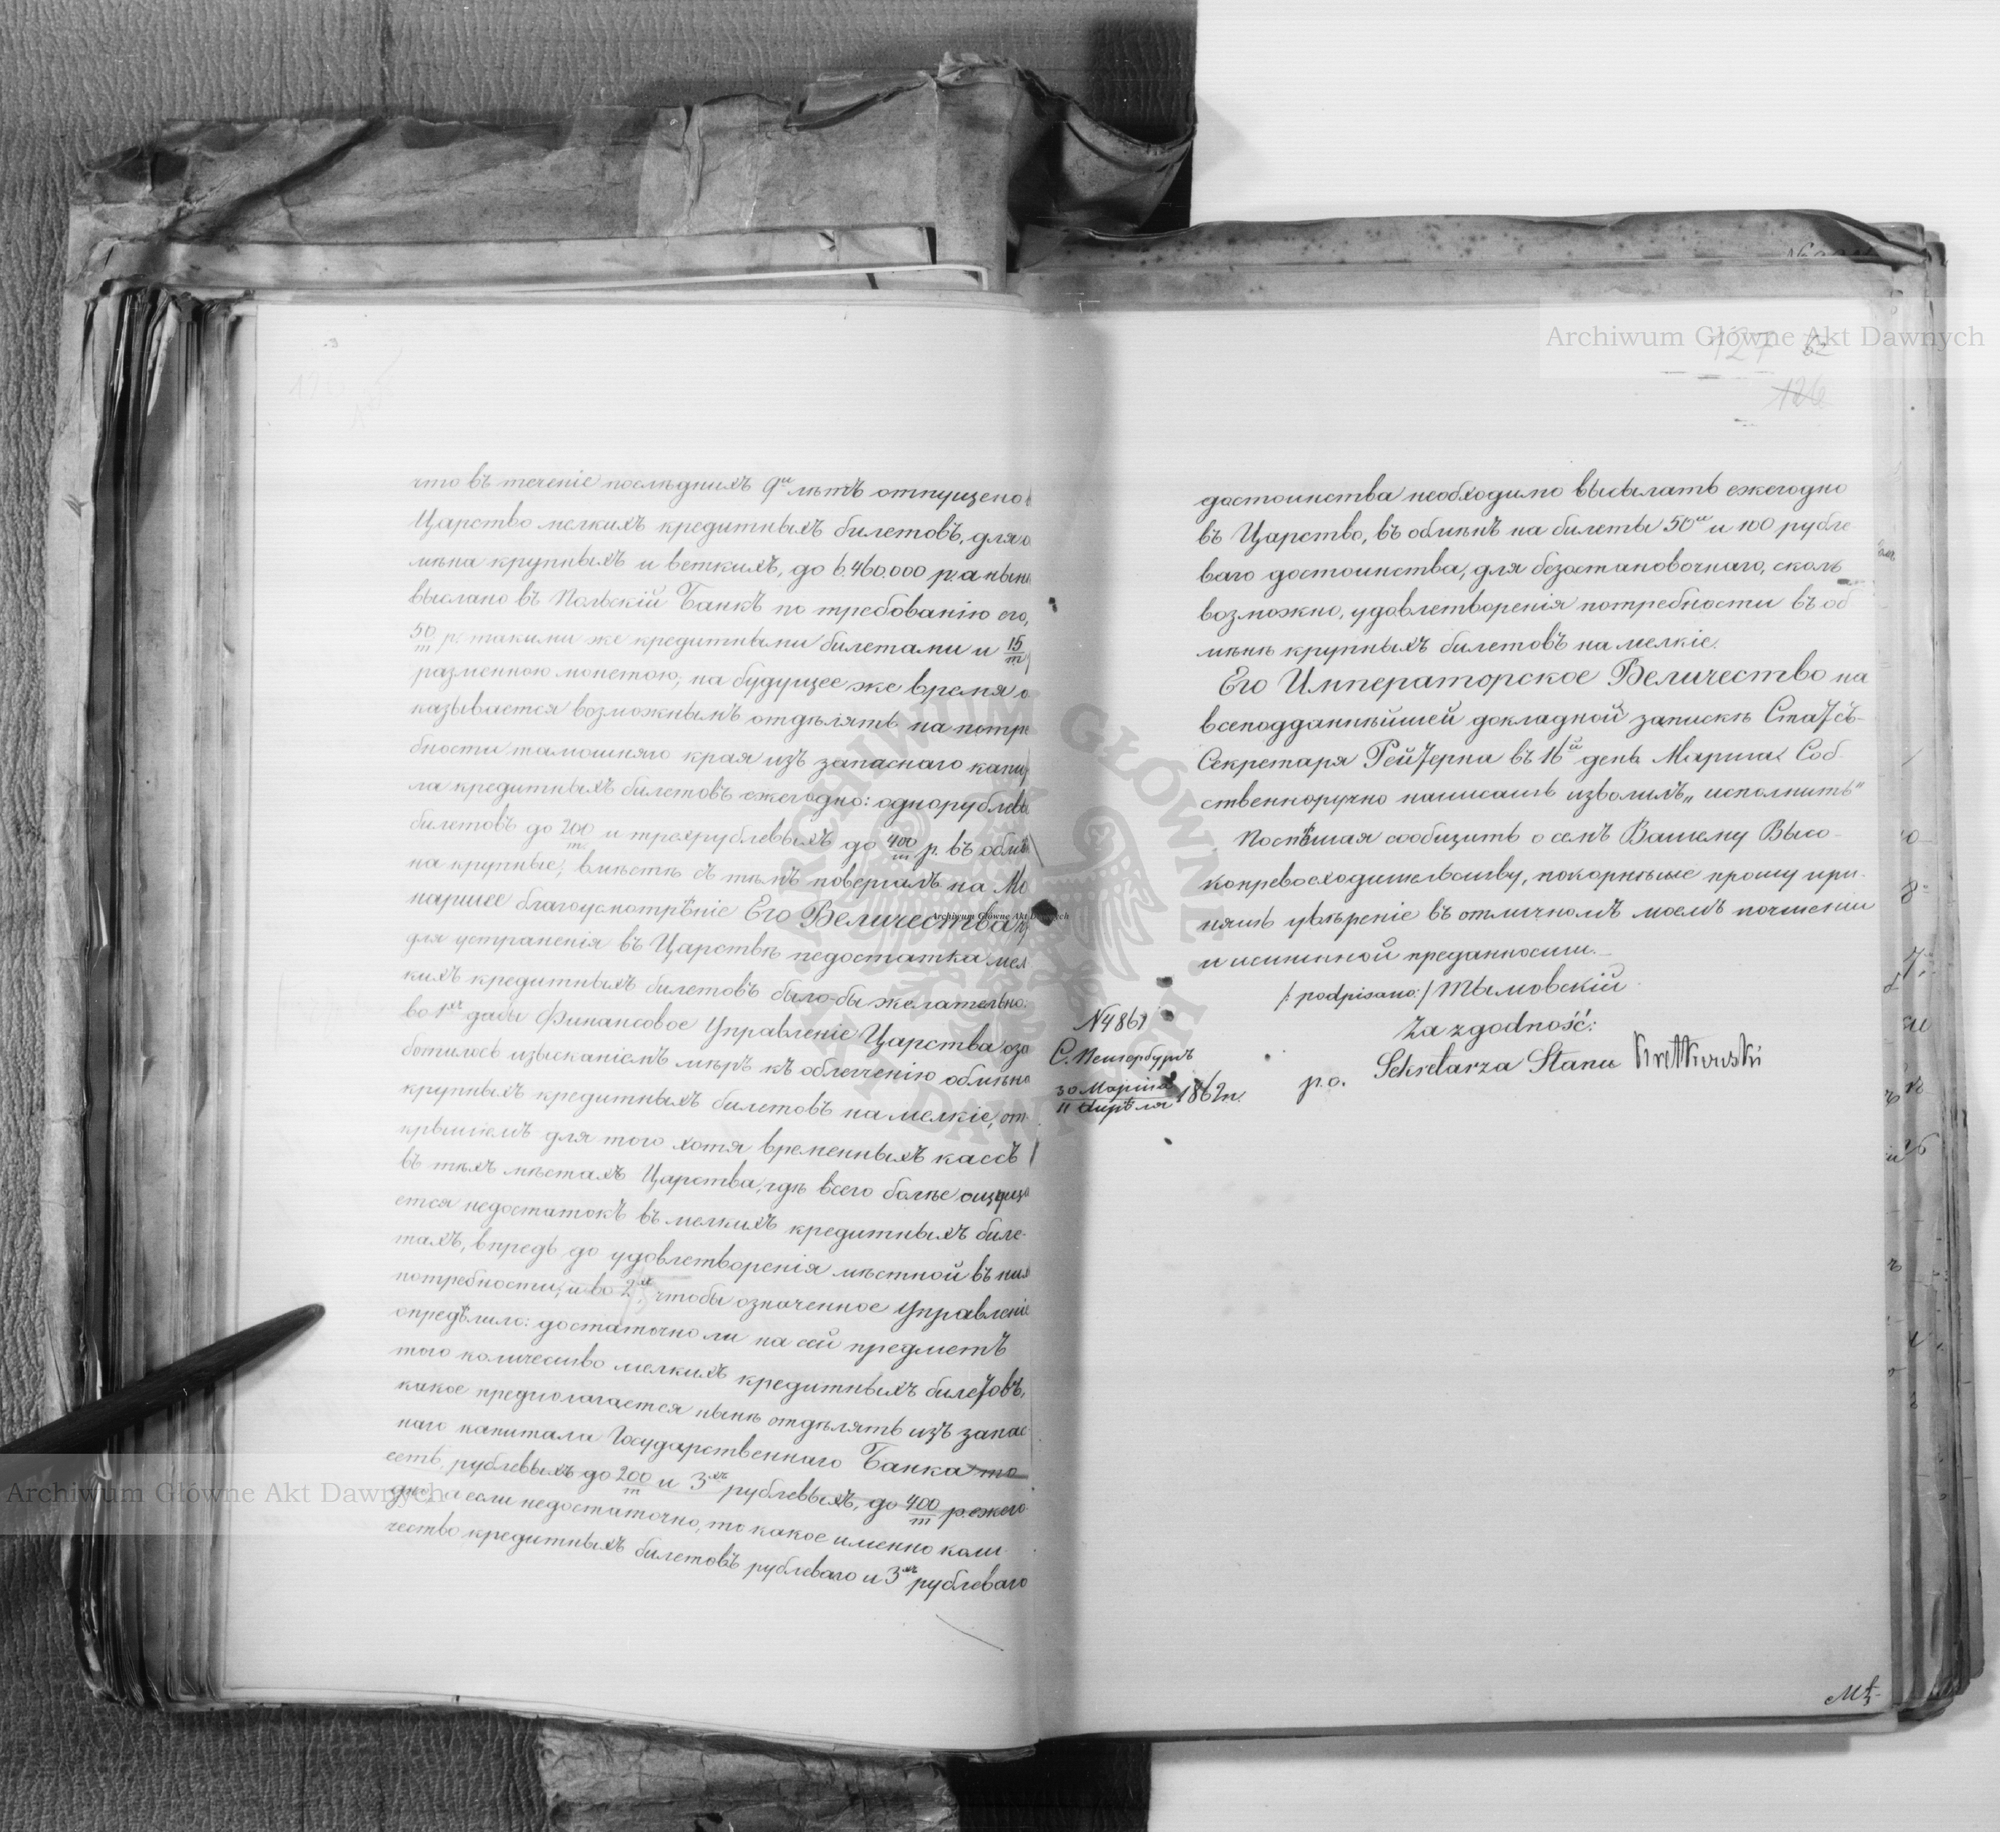 что въ теченіе послѣднихъ 9ти лѣтъ отпущено
Царство мелкихъ кредитныхъ билетовъ, для о
мѣна крупныхъ и ветхихъ, до 6,460,000 р. а нынѣ
выслано въ Польскій Банкъ по требованію его,
50/m р. такими же кредитными билетами и 15/m
размѣнною монетою; на будущее же время о
казывается возможнымъ отдѣлять на потре
бности тамошняго края изъ запаснаго капи
ла кредитныхъ билетовъ ежегодно: однорублевы
билетовъ до 200/m и трехрублевыхъ до 400/m р. въ обмѣ
на крупные; вмѣстѣ съ тѣмъ повергалъ на Мо
наршее благоусмотрѣніе Его Величества
для устраненія въ Царствѣ недостатка мел
кихъ кредитныхъ билетовъ было-бы желательно:
во 1хъ дабы Финансовое Управленіе Царства оза
ботилось изысканіемъ мѣръ къ облегченію обмѣна
крупныхъ кредитныхъ билетовъ на мелкіе, от
крытіемъ для того хотя временныхъ кассъ
въ тѣхъ мѣстахъ Царства, гдѣ всего болѣе ощуща
ется недостатокъ въ мелкихъ кредитныхъ биле-
тахъ, впредь до удовлетворенія мѣстной въ них
потребности; и во 2хъ, чтобы означенное Управленіе
опредѣлило: достаточно ли на сей предметъ
того количество мелкихъ кредитныхъ билетовъ,
какое предполагается нынѣ отдѣлять изъ запас
наго капитала Государственнаго Банка то
есть, рублевыхъ до 200/m и 3хъ рублевыхъ, до 400/m р. ежего
дно, а если недостаточно, то какое именно коли
чество кредитныхъ билетовъ рублеваго и 3хъ рублеваго
127
126
достоинства необходимо высылать ежегодно
въ Царство, въ обмѣнъ на билеты 50ти и 100 рубле
ваго достоинства, для безостановочнаго, сколь
возможно, удовлетворенія потребности въ об
мѣнѣ крупныхъ билетовъ на мелкіе.
Его Императорское Величество на
всеподданнѣйшей докладной запискѣ Статсъ-
Секретаря Рейтерна въ 16й день Марта Соб
ственноручно написать изволилъ „исполнить“
Поспѣшая сообщить о семъ Вашему Высо-
копревосходительству, покорнѣйше прошу при-
нять увѣреніе въ отличномъ моемъ почтеніи
и истинной преданности.
/: podpisano:/ Тымовскій
Za zgodność:
p.o. Sekretarza Stanu Kretkowski
N 4861
С. Петербургъ
30 Марта / 11 Апрѣля 1862 г.
Archiwum Główne Akt Dawnych
Archiwum Główne Akt Dawnych
Archiwum Główne Akt Dawnych
ARCHIWUM GŁÓWNE AKT DAWNYCH